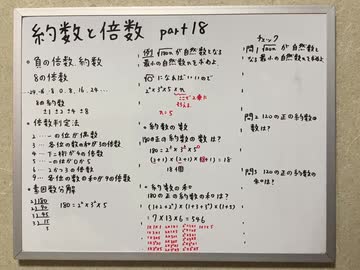 約数と倍数 part 18
・負の倍数、約数
8の倍数
-24, -16, -8, 0, 8, 16, 24...
8の約数
±1 ±2 ±4 ±8
・倍数判定法
2 ... 一の位が偶数
3 ... 各位の数の和が3の倍数
4 ... 下2桁が4の倍数
5 ... 一の位が0か5
6 ... 2かつ3の倍数
9 ... 各位の数の和が9の倍数
・素因数分解
2)180
2) 90
3) 45
3) 15
5
180=2²×3²×5
例1
が自然数となる
最小の自然数nを求めよ
になればいいので
2²×3²×5×n
n=5
・約数の数
180の正の約数の数は?
180=2²×3²×5
(2+1)×(2+1)×(1+1)=18
18個
・約数の和
180の正の約数の和は?
(1+2+2²)×(1+3+3²)×(1+5)
=7×13×6=546
チェック
問1
が自然数と
なる最小の自然数nを求めよ
問2 120の正の約数の
数は?
問3 120の正の約数の
和は?